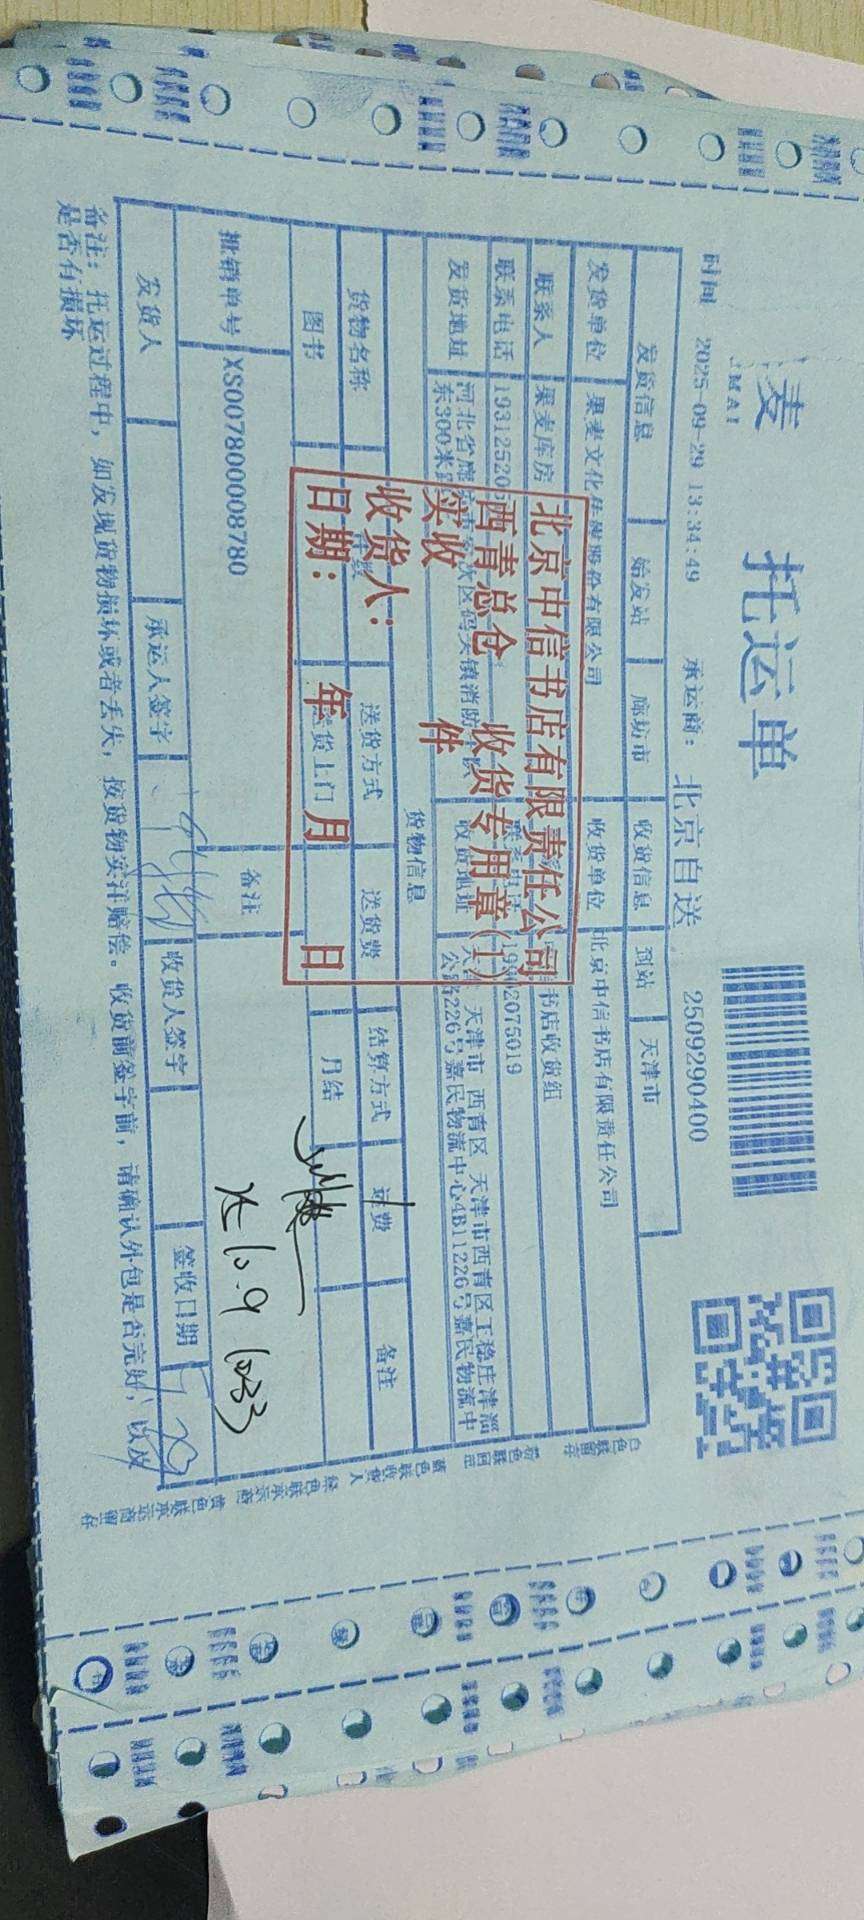 麦
托运单
时间 2025-09-29 13:34:49 承运商： 北京自送 2509290400
发货信息 始发站 廊坊市 收货信息 到站 天津市
发货单位 果麦文化传媒股份有限公司 收货单位 北京中信书店有限责任公司
联系人 果麦库房 书店收货组
联系电话
发货地址 收货地址 天津市 西青区 天津市西青区王稳庄津淄
公路226号嘉民物流中心4B11226号嘉民物流中
东300米
货物信息
货物名称 件数 送货方式 送货费 结算方式 运费 备注
图书 送货上门 月结
批销单号 XS007800008780 备注
大 10.9 1033
发货人 承运人签字 收货人签字 签收日期
备注：托运过程中，如发现货物损坏或者丢失，按货物实洋赔偿。收货前签字前，请确认外包是否完好，以及
是否有损坏
北京中信书店有限责任公司
西青总仓 收货专用章(1)
实收 件
收货人：
日期： 年 月 日
白色联留存
粉色联回单
蓝色联收货人
绿色联承运商
黄色联承运商留存